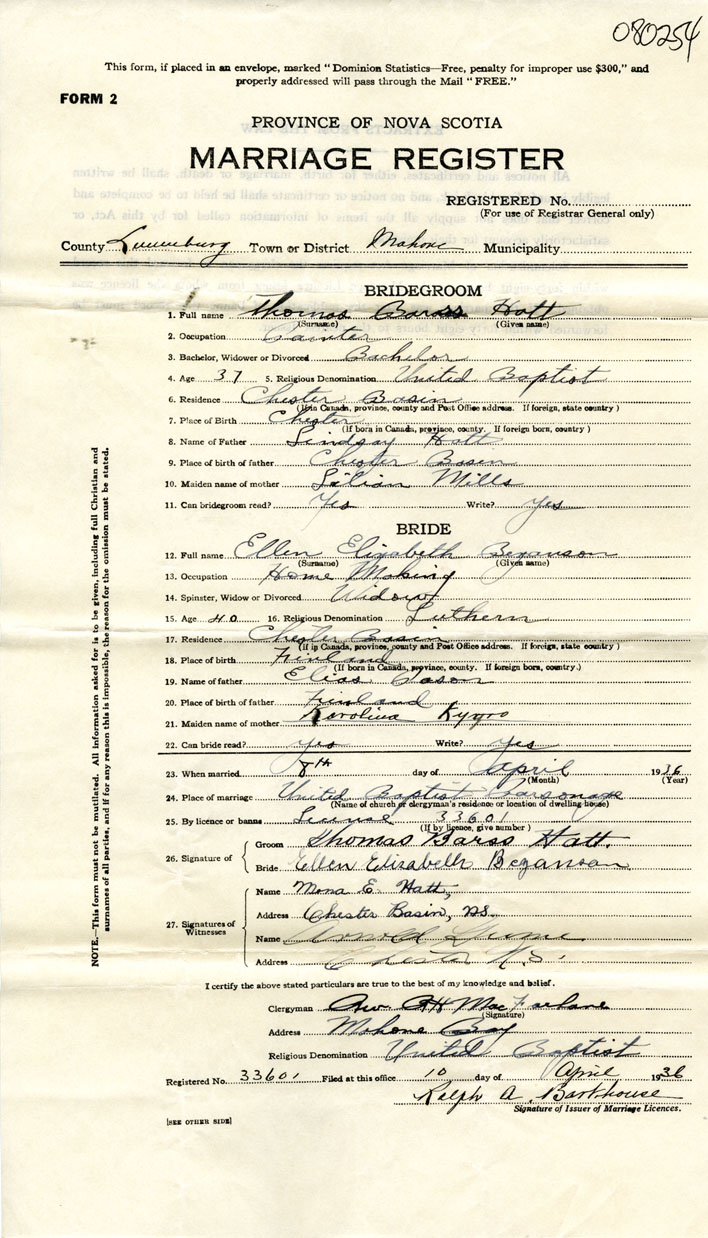 080254
This form, if placed in an envelope, marked "Dominion Statistics—Free, penalty for improper use $300," and
properly addressed will pass through the Mail "FREE."
FORM 2
PROVINCE OF NOVA SCOTIA
MARRIAGE REGISTER
REGISTERED No.
(For use of Registrar General only)
County Lunenburg Town or District Mahone Municipality
BRIDEGROOM
1. Full name Thomas Barss Hatt
(Surname) (Given name)
2. Occupation Painter
3. Bachelor, Widower or Divorced Bachelor
4. Age 37 5. Religious Denomination United Baptist
6. Residence Chester Basin
(If in Canada, province, county and Post Office address. If foreign, state country)
7. Place of Birth Chester
(If born in Canada, province, county. If foreign born, country)
8. Name of Father Lindsay Hatt
9. Place of birth of father Chester Basin
10. Maiden name of mother Lilian Mills
11. Can bridegroom read? Yes Write? Yes
BRIDE
12. Full name Ellen Elizabeth Bezanson
(Surname) (Given name)
13. Occupation Home Making
14. Spinster, Widow or Divorced Widow
15. Age 40 16. Religious Denomination Luthern
17. Residence Chester Basin
(If in Canada, province, county and Post Office address. If foreign, state country)
18. Place of birth Finland
(If born in Canada, province, county. If foreign born, country.)
19. Name of father Elias
20. Place of birth of father Finland
21. Maiden name of mother Karolina Kyyro
22. Can bride read? yes Write? yes
23. When married 8th day of April 1936
(Month) (Year)
24. Place of marriage United Baptist Parsonage
(Name of church or clergyman's residence or location of dwelling-house)
25. By licence or banns License 33601
(If by licence, give number)
26. Signature of
Groom Thomas Barss Hatt.
Bride Ellen Elizabeth Bezanson
27. Signatures of Witnesses
Name Mona E. Hatt,
Address Chester Basin, NS.
Name Arnold
Address Chester N.S.
I certify the above stated particulars are true to the best of my knowledge and belief.
Clergyman MacFarlane
(Signature)
Address Mahone Bay
Religious Denomination United Baptist
Registered No. 33601 Filed at this office 10 day of April 1936
Ralph A. Barkhouse
Signature of Issuer of Marriage Licences.
[SEE OTHER SIDE]
NOTE.—This form must not be mutilated. All information asked for is to be given, including full Christian and
surnames of all parties, and if for any reason this is impossible, the reason for the omission must be stated.